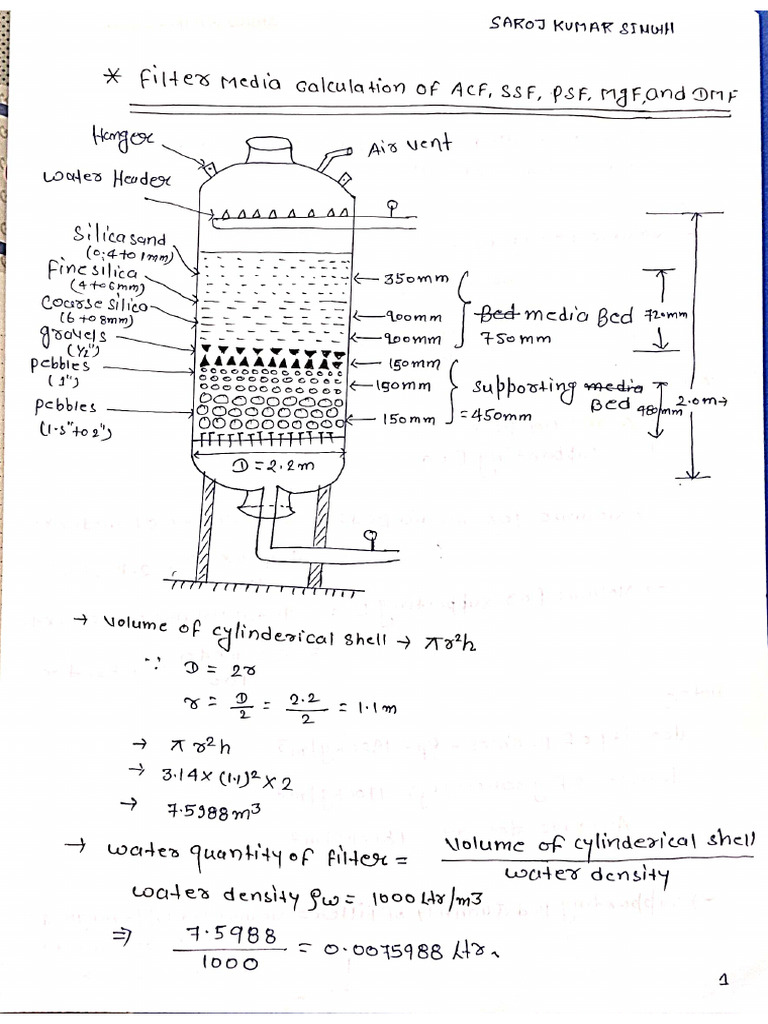 SAROJ KUMAR SINGH
* Filter Media Calculation of ACF, SSF, PSF, MgF, and DMF
Hanger
Air vent
Water Header
Silica sand
(0.4 to 1mm)
Fine silica
(4 to 6mm)
Coarse silica
(6 to 8mm)
gravels
(1/2")
pebbles
(1")
pebbles
(1.5" to 2")
350mm
200mm
200mm
150mm
150mm
150mm
Bed media Bed
750mm
supporting media
Bed
=450mm
720mm
980mm
2.0m
D = 2.2m
→ Volume of cylinderical shell → πr²h
∵ D = 2r
r = D/2 = 2.2/2 = 1.1m
→ πr²h
→ 3.14 × (1.1)² × 2
→ 7.5988m³
→ water quantity of filter = Volume of cylinderical shell / water density
water density ρw = 1000 Ltr/m3
⇒ 7.5988/1000 = 0.0075988 Ltr.
1